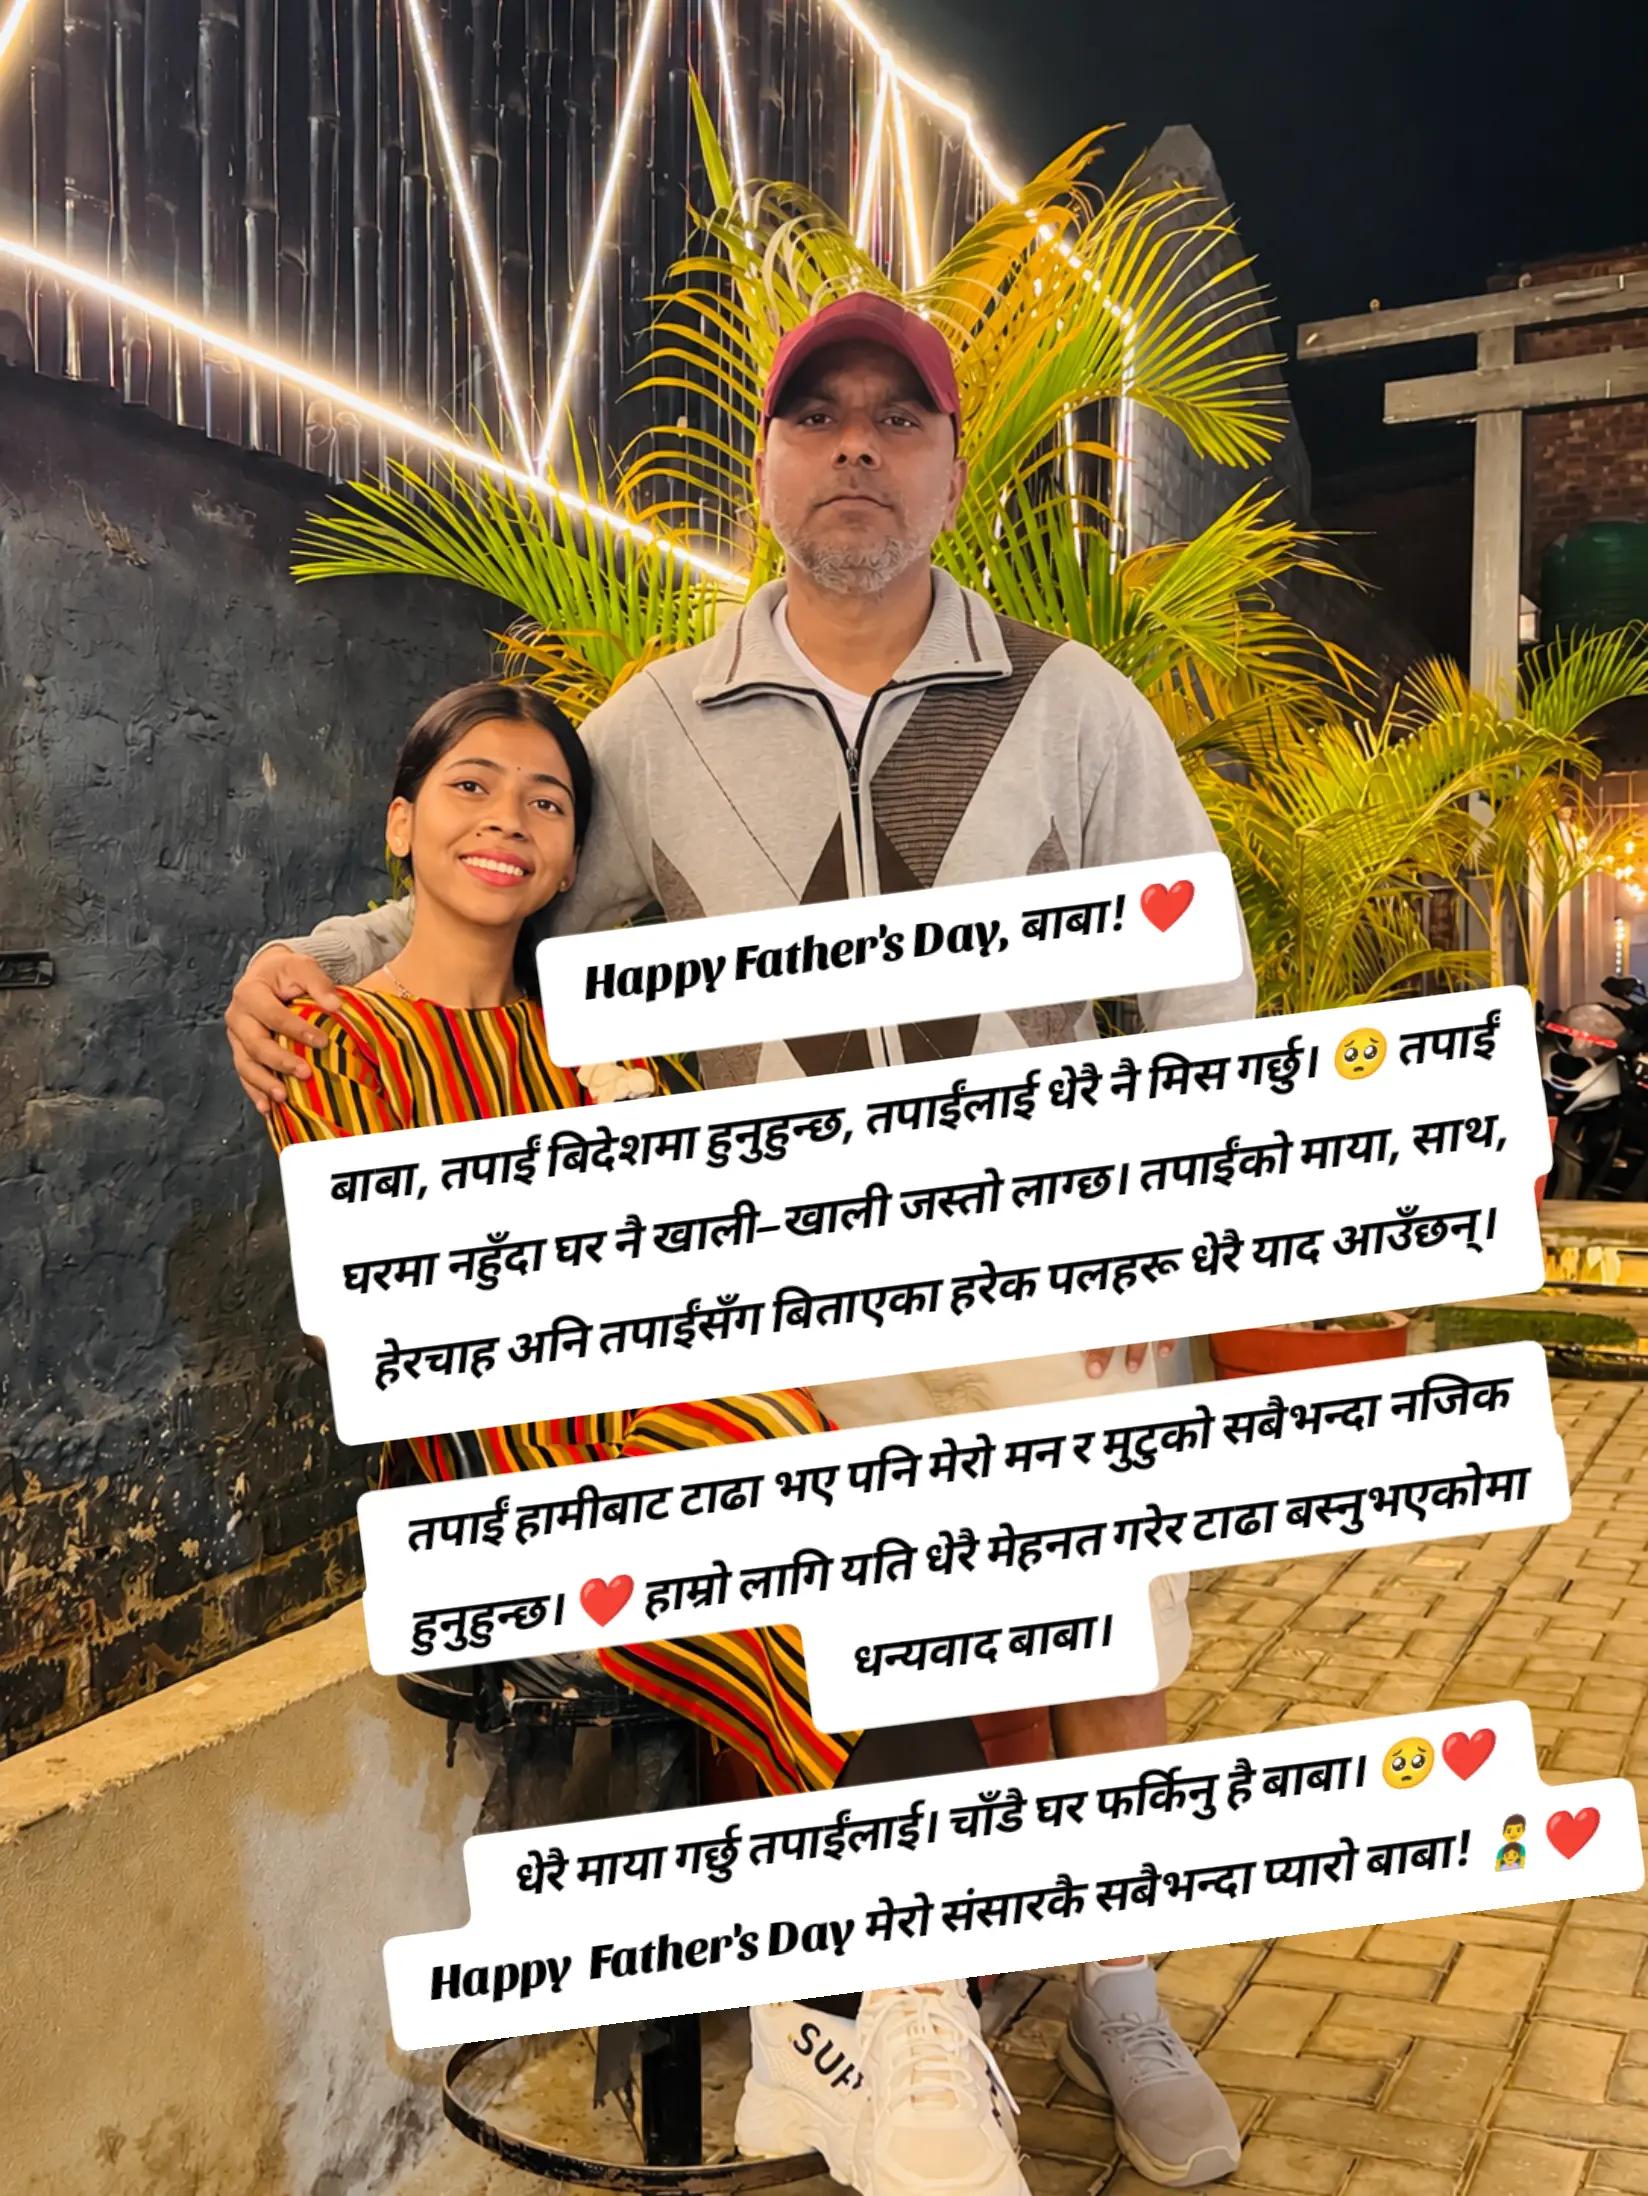 Happy Father's Day, बाबा! ❤️
बाबा, तपाईं बिदेशमा हुनुहुन्छ, तपाईंलाई धेरै नै मिस गर्छु। 🥺 तपाईं
घरमा नहुँदा घर नै खाली–खाली जस्तो लाग्छ। तपाईंको माया, साथ,
हेरचाह अनि तपाईंसँग बिताएका हरेक पलहरू धेरै याद आउँछन्।
तपाईं हामीबाट टाढा भए पनि मेरो मन र मुटुको सबैभन्दा नजिक
हुनुहुन्छ। ❤️ हाम्रो लागि यति धेरै मेहनत गरेर टाढा बस्नुभएकोमा
धन्यवाद बाबा।
धेरै माया गर्छु तपाईंलाई। चाँडै घर फर्किनु है बाबा। 🥺❤️
Happy Father's Day मेरो संसारकै सबैभन्दा प्यारो बाबा! 👨‍👧 ❤️